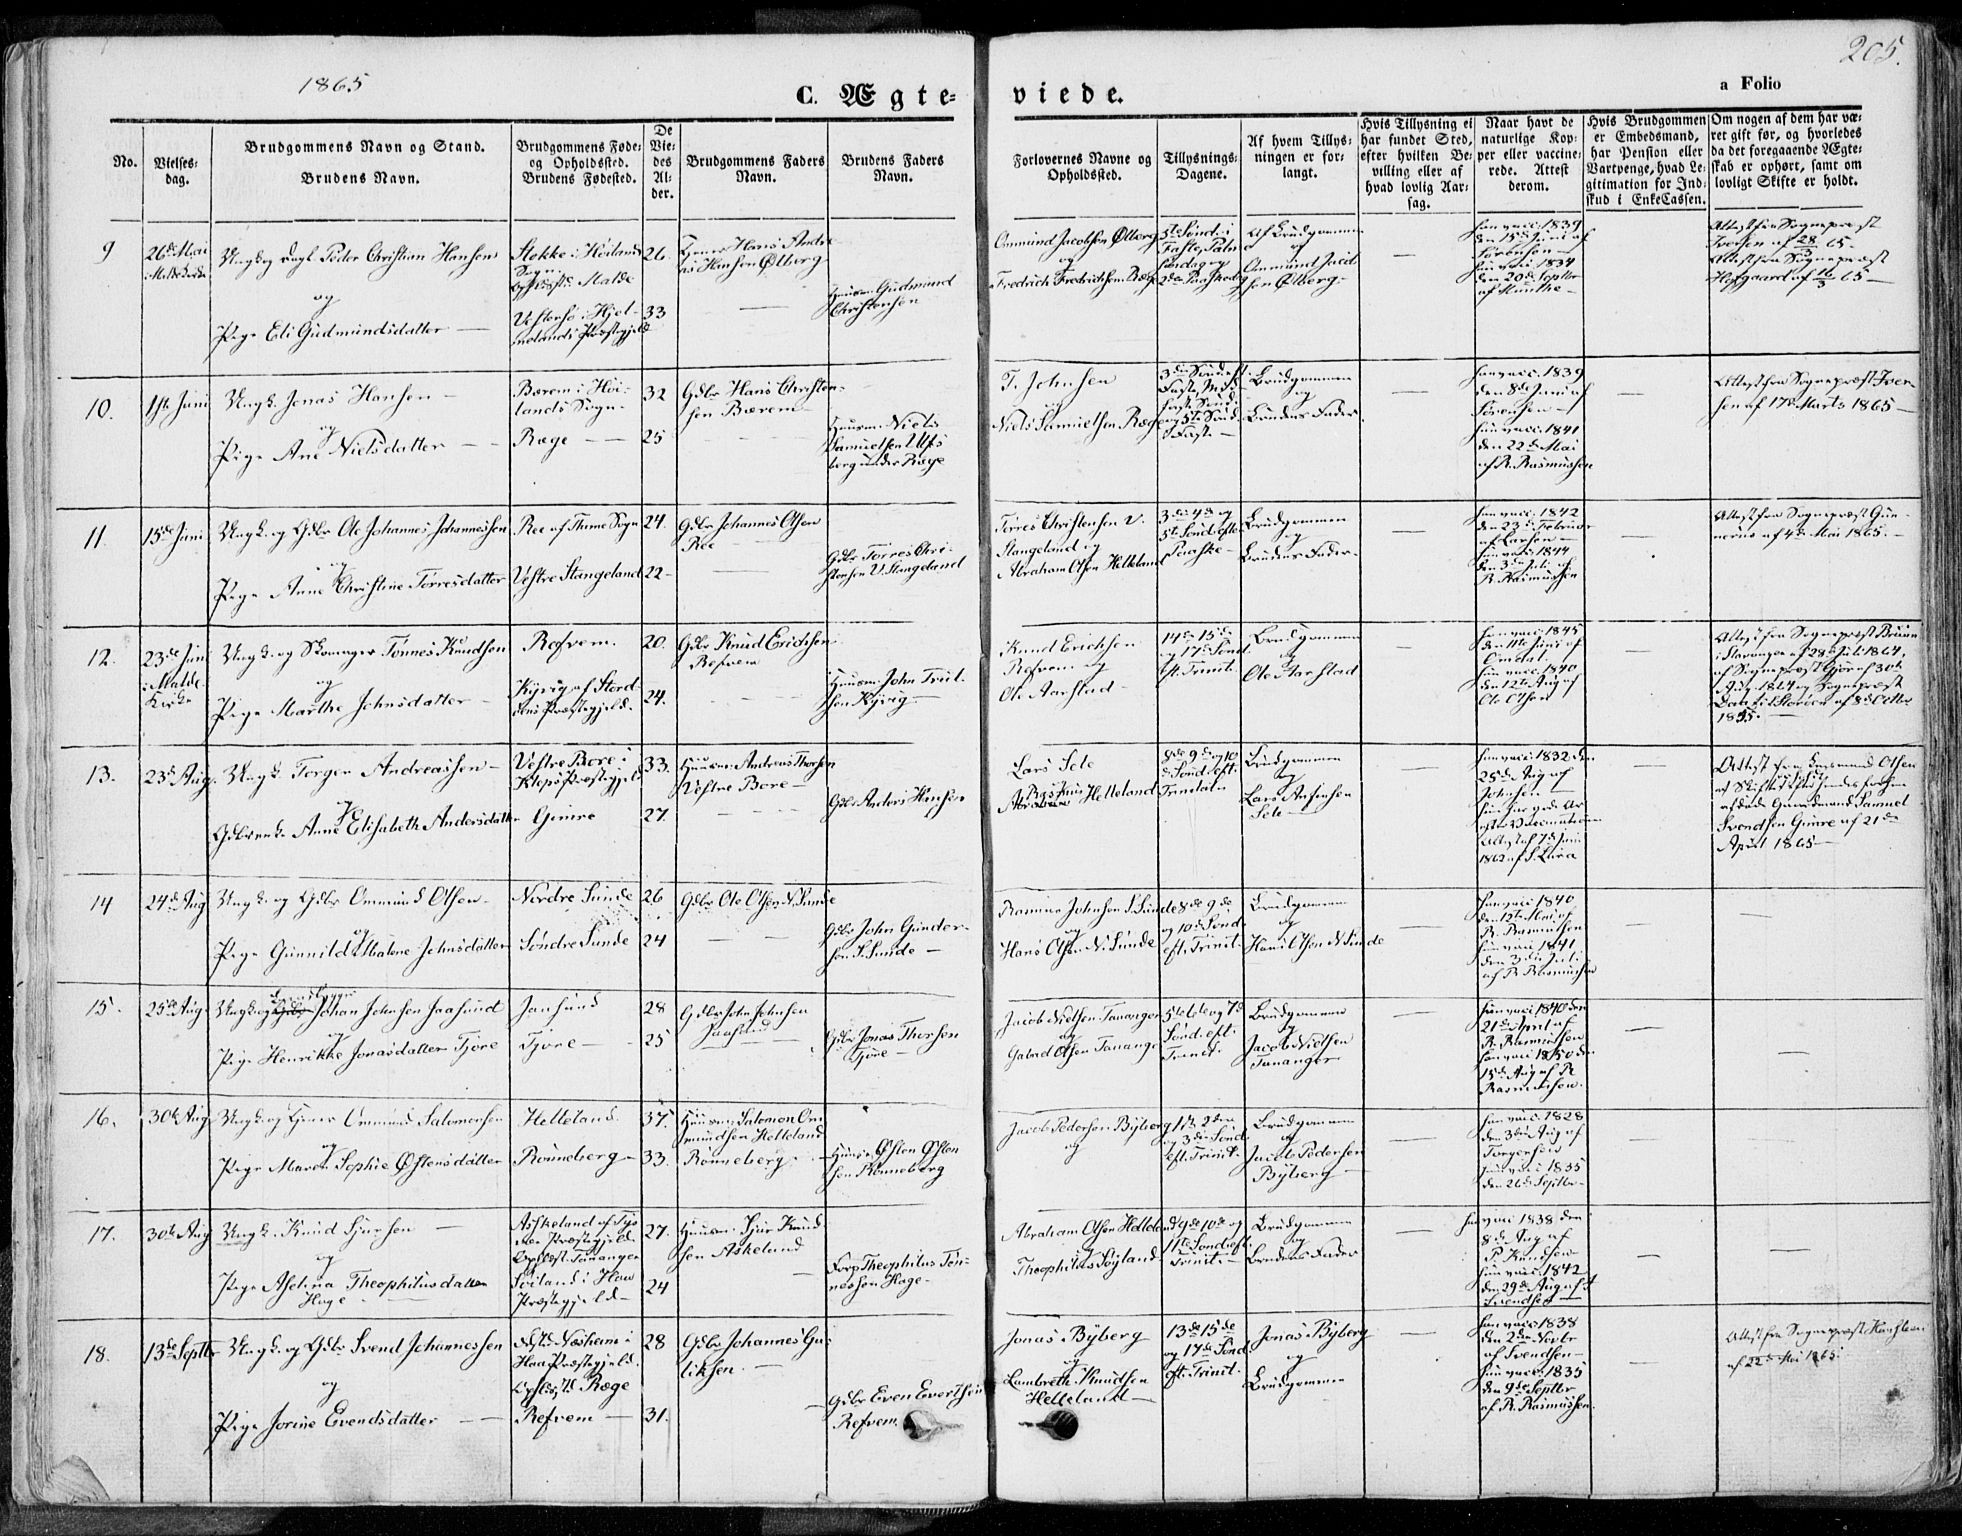 1865
205.
C. Ægte-
viede.
a Folio
No.
Vielses-
dag.
Brudgommens Navn og Stand.
Brudens Navn.
Brudgommens Føde-
og Opholdssted.
Brudens Fødested.
De
Vie-
des
Al-
der.
Brudgommens Faders
Navn.
Brudens Faders
Navn.
Forlovernes Navne og
Opholdssted.
Tillysnings-
Dagene.
Af hvem Tillys-
ningen er for-
langt.
Hvis Tillysning ei
har fundet Sted,
efter hvilken Be-
villing eller af
hvad lovlig Aar-
sag.
Naar havt de
naturlige Kop-
per eller vaccine-
rede. Attest
derom.
Hvis Brudgommen
er Embedsmand,
har Pension eller
Vartpenge, hvad Le-
gitimation for Ind-
skud i EnkeCassen.
Om nogen af dem har væ-
ret gift før, og hvorledes
da det foregaaende Ægte-
skab er ophørt, samt om
lovligt Skifte er holdt.
9
26de Mai
Peder Christian Hansen
og
Pige Eli Gudmundsdatter
Stokke i Høilands
Sogn
Malde
i Hjel-
melands Præstegjeld
26.
33
Hans Andre
as Hansen Ølberg
Huusm. Gudmund
Christensen
Ommund Jacobsen Ølberg
og
Fredrich Fredrichsen Ræge
5te Sønd. i
Faste, Palm
søndag og
2den Paaskedag
Af Brudgommen
og
Ommund Jacob
sen Ølberg
han vacc. 1839
den 15de Juni af
Sørensen
hun vacc. 1834
den 20de Septbr
af Munthe
Attest fra Sognepræst
Iversen af 28/3 65.
Attest fra Sognepræst
af 16/3 65
10.
1ste Juni
Ungk. Jonas Hansen
og
Pige Ane Nielsdatter
Bærem i Høi-
lands Sogn
Ræge
32
25
Gdbr. Hans Christen-
sen Bærem
Huusm. Niels
Samuelsen Ulfs
berg under Ræge
T. Johnsen
og
Niels Samuelsen Ræge
3die Sønd. i
Faste, Mid-
faste Sønd.
og 5te Sønd.
i Faste
Brudgommen
og
Brudens Fader
han vacc. 1839
den 8de Juni af
Sørensen
hun vacc. 1841
den 22de Mai
af R. Rasmussen
Attest fra Sognepræst Iver-
sen af 17de Marts 1865
11.
15de Juni
Ungk. og Gdbr Ole Johannes Johannessen
og
Pige Anne Christine Torresdatter
Ree af Thime Sogn
Vestre Stangeland
24.
22
Gdbr Johannes Olsen
Ree
Gdbr Torres Chri-
stensen V. Stangeland
Torres Christensen V.
Stangeland og
Abraham Olsen Helleland
3die 4de og
5te Sønd. efter
Paaske
Brudgommen
og
Brudens Fader
han vacc. 1842
den 23de Februar
af Larsen
hun vacc. 1844
den 3die Juli af
R. Rasmussen
Attest fra Sognepræst Gun-
nerus af 4de Mai 1865.
12.
23de Juni
i Malde
Kirke
Ungk. og Tønnes Knudsen
og
Pige Marthe Johnsdatter
Refvem.
Kyvig af Stord-
øens Præstegjeld.
20.
24.
Gdbr Knud Erichsen
Refvem
Huusm. John Trul-
sen Kyvig
Knud Erichsen
Refvem og
Ole Aarstad
14de 15de
og 17de Sønd.
eft. Trinit.
Brudgommen
og
Ole Aarstad
han vacc. 1845
den 11te Juni af
Omdal
hun vacc. 1840
den 12te Aug af
Ole Olsen
Attest fra Sognepræst Bruun
i Stavanger af 28de Juli 1864,
af Sognepræst Gjør af 30te
Aug. 1864 og Sognepræst
af 8de Octbr
13.
23de Aug.
Ungk. Torger Andreassen
og
Gdbrenke Anne Elisabeth Andersdatter
Vestre Bore i
Kleps Præstegjeld
Gimre
33.
27
Huusm. Andreas Thorsen
Vestre Bore
Gdbr Anders Hansen
Lars Sele
Rasmus Helleland
8de 9de og 10
de Sønd. eft.
Trinitatis
Brudgommen
og
Lars Ansensen
Sele
han vacc. 1832 den
25de Aug af
Johnsen
Attest af 7de Juni
1862 af S. Lura
Attest fra Lensmand Olsen
afdøde Gaardmand Samuel
Svendsen Gimre af 21de
April 1865
14
24de Aug
Ungk. og Gdbr Ommund Olsen
og
Pige Gunnild Malene Johnsdatter
Nordre Sunde
Søndre Sunde
26
24
Gdbr Ole Olsen N. Sunde
Gdbr John Gunder-
sen S. Sunde
Rasmus Johnsen S. Sunde
og
Hans Olsen N. Sunde
8de 9de
og 10de Sønd.
eft. Trinit.
Brudgommen
og
Hans Olsen N. Sunde
han vacc. 1840
den 12te Mai af
R. Rasmussen
hun vacc. 1841
den 3die Juli
af R. Rasmussen
15.
25de Aug
Ungk. og Johan Johnsen Jaasund
og
Pige Henrikke Jonasdatter Tjore
Jaasund
Tjore
28
25
Gdbr John Johnsen
Jaasund
Gdbr Jonas Thorsen
Tjore
Jacob Nielsen Tananger
og
Gabriel Olsen Tananger
5te 6te og 7de
Sønd. eft.
Trinit.
Brudgommen
og
Jacob Nielsen
Tananger
han vacc. 1840 den
21de April af
R. Rasmussen
hun vacc. 1850 den
15de Aug af R
Rasmussen.
16.
30te Aug
Ungk. og Ommund Salomonsen
og
Pige Maren Sophie Østensdatter
Helleland
Rønneberg
37.
33.
Huusm. Salomon Om
mundsen Helleland
Rønneberg
Huusm. Østen Østen
sen Rønneberg
Jacob Pedersen Byberg
og
1ste 2den
og 3die Sønd.
eft. Trinit.
Brudgommen
og
Jacob Pedersen
Byberg
han vacc. 1828
den 3die Aug af
Torgersen
hun vacc. 1835
den 26de Septbr
17.
30te Aug
Ungk. Knud Sjursen
og
Pige Aselina Theophilusdatter
Hage
Askeland af Tys
nes Præstegjeld.
Opholdst. Tananger
Søiland i Haa
Præstegjeld
27.
24
Huusm. Sjur Knud-
sen Askeland
Theophilus Tøn-
nessen Hage
Abraham Olsen Helleland
Theophilus Søyland
9de 10de og
11te Sønd. eft.
Trinit.
Brudgommen
og
Brudens Fader
han vacc. 1838 den
8de Aug af
P. Knudsen
hun vacc. 1842
den 29de Aug af A
Svendsen
18.
13de Septbr
Ungk. og Gdbr Svend Johannessen
og
Pige Jorine Evendsdatter
Næsheim i
Haa Præstegjeld.
Opholdsst. Ræge
Refvem
28
31.
Gdbr Johannes Gu-
liksen.
Gdbr Even Evertsen
Refvem.
Jonas Byberg
og
Lambreth Knudsen
Helleland
13de 15de
og 17de Sønd.
eft. Trinit.
Jonas Byberg
og
Brudgommen
han vacc. 1838
den 2den Novbr
af Svendsen
hun vacc. 1835
den 9de Septbr
af R. Rasmussen.
Attest fra Sognepræst
af 22de Mai 1865.